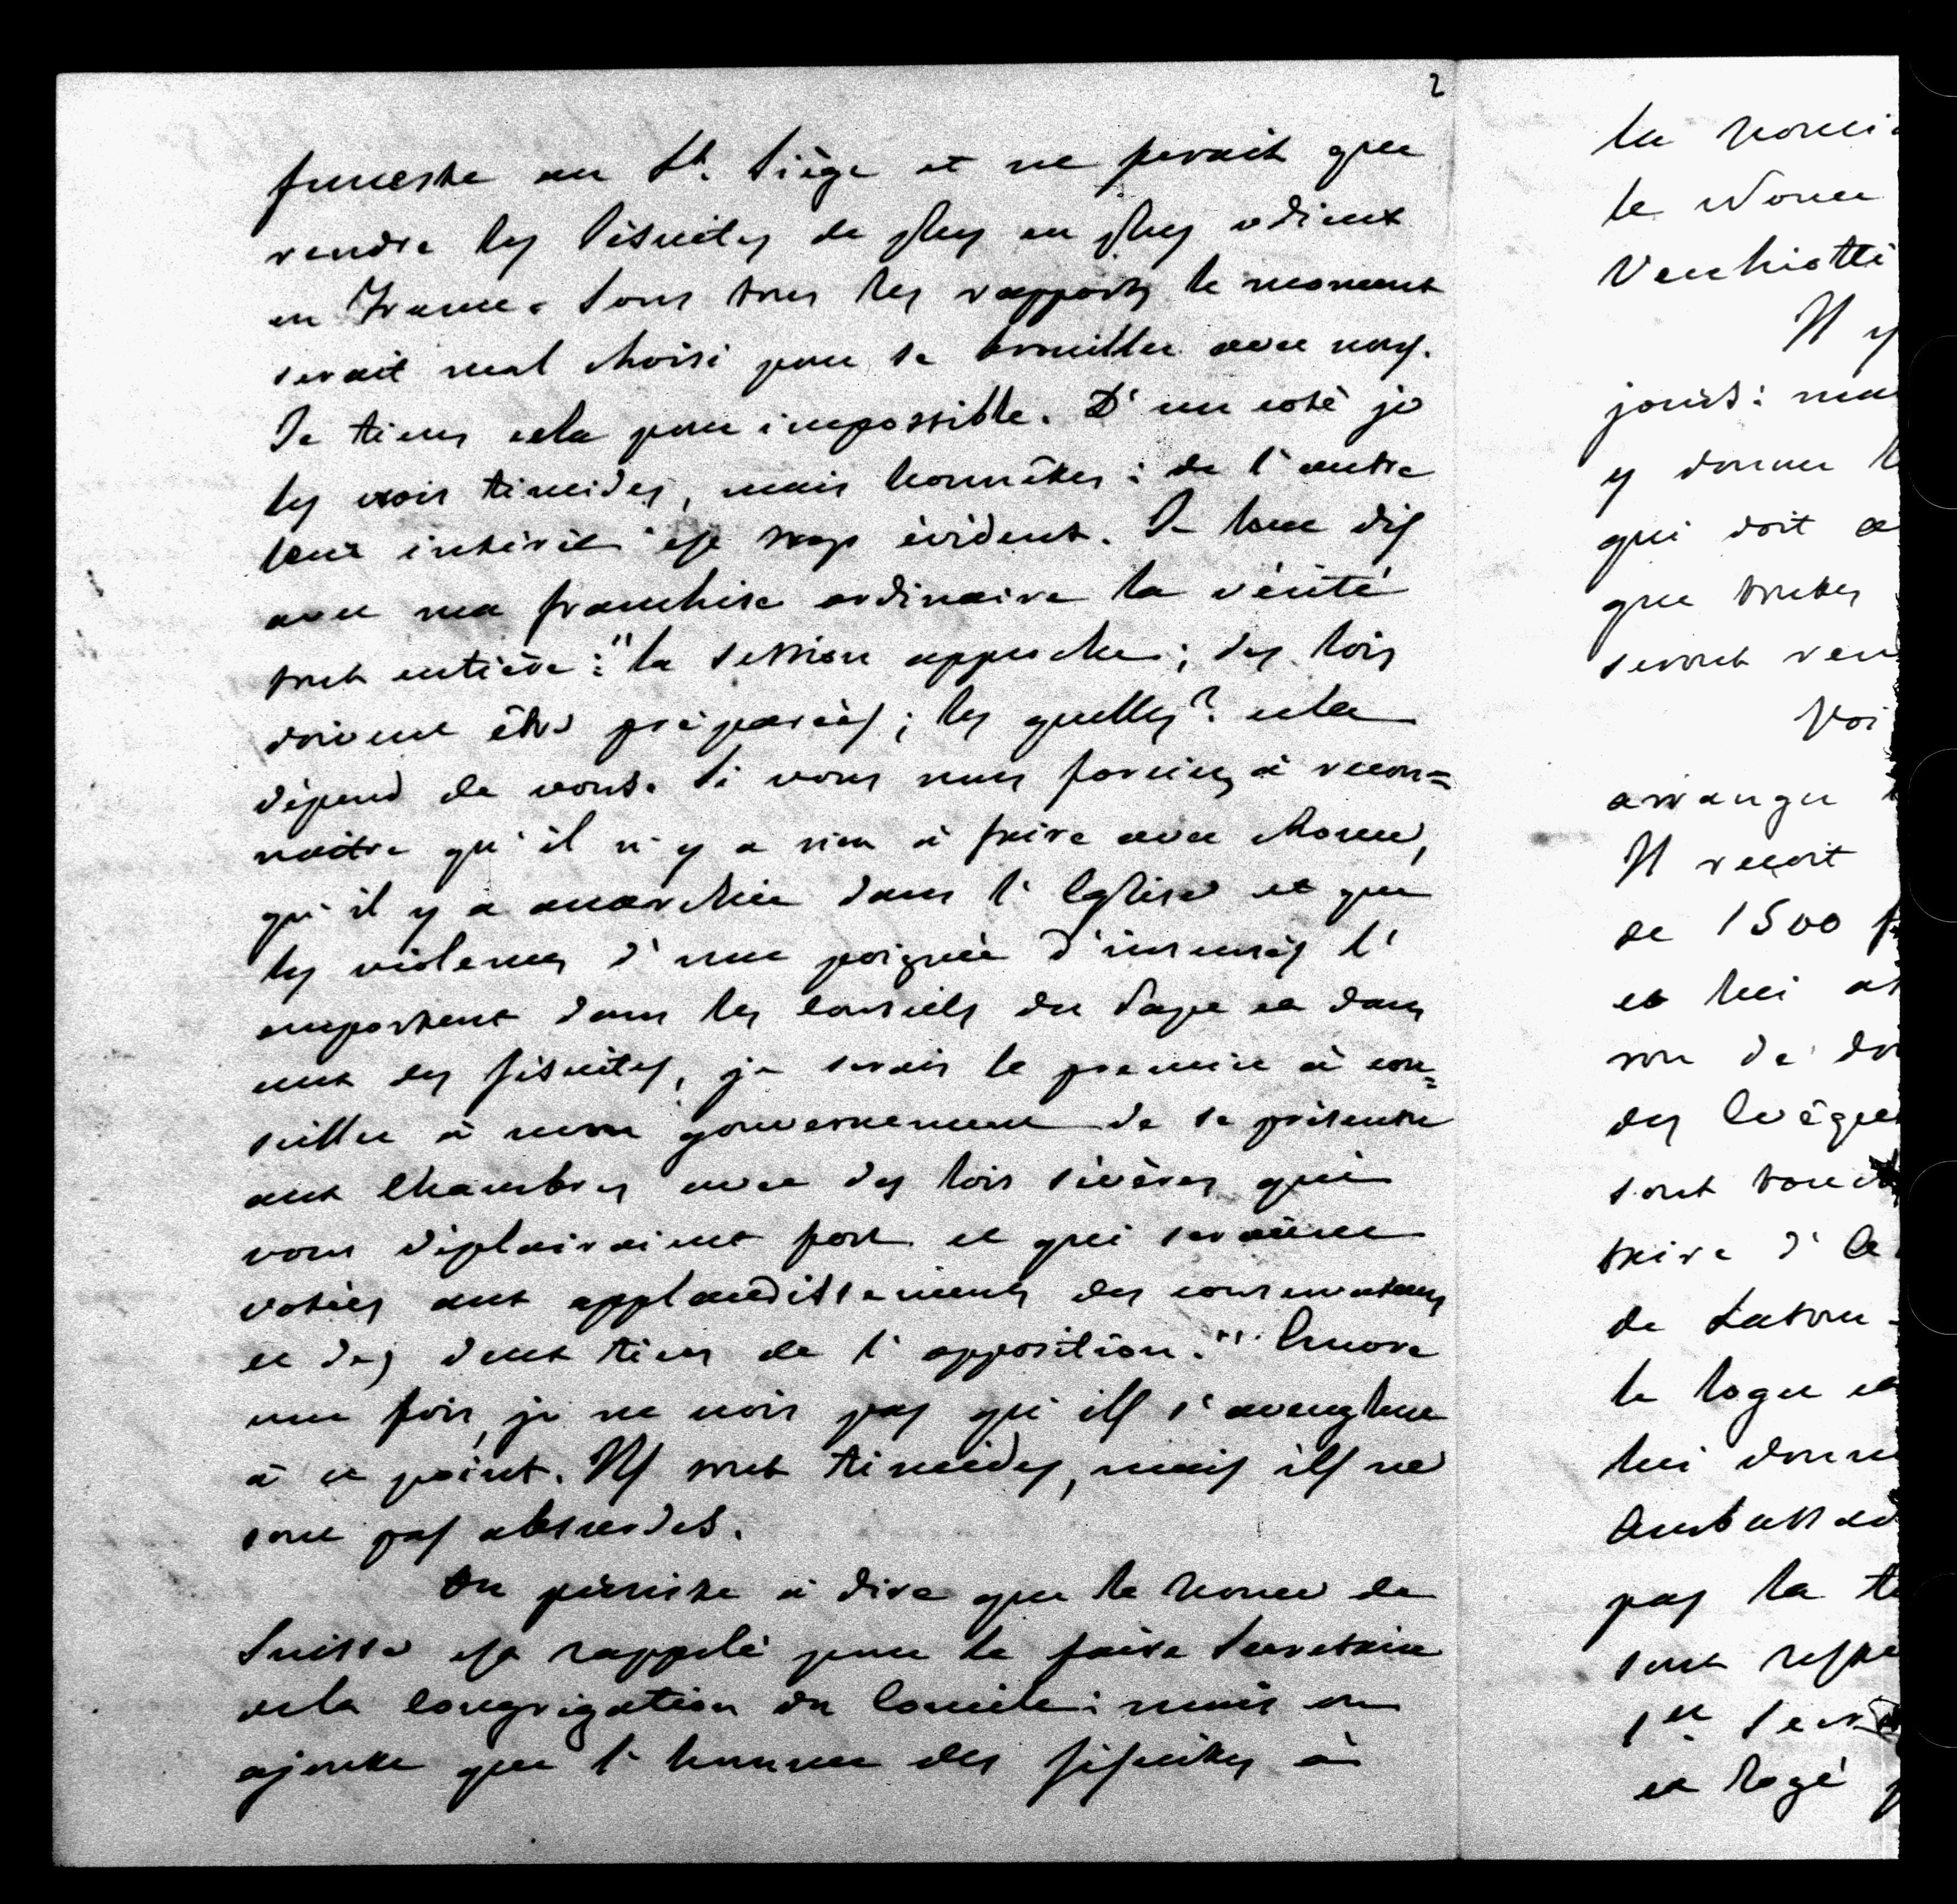 2
funeste au St. Siège et ne ferait que
rendre les Jésuites de plus en plus odieux
en France. Sous tous les rapports le moment
serait mal choisi pour se brouiller avec nous.
Je tiens cela pour impossible. D'un coté je
les crois timides, mais honnêtes: de l'autre
leur intérêt est trop évident. Je leur dis
avec ma franchise ordinaire la vérité
tout entière: "la session approche; des lois
doivent être préparées; les quelles? cela
dépend de vous. Si vous nous forciez à recon=
naitre qu'il n'y a rien à faire avec Rome,
qu'il y a anarchie dans l'Eglise et que
les violences d'une poignée d'insensés l'
emportent dans les conseils du Pape et dans
ceux des Jésuites, je serais le premier à con=
seiller à mon gouvernement de se présenter
aux Chambres avec des lois sévères qui
vous déplairaient fort et qui seraient
votées aux applaudissements des conservateurs
et des deux tiers de l'opposition." Encore
une fois, je ne crois pas qu'ils s'aveuglent
à ce point. Ils sont timides, mais ils ne
sont pas absurdes.
On persiste à dire que le Nonce de
Suisse est rappelé pour le faire Secretaire
de la Congrégation du Concile: mais on
ajoute que l'homme des Jésuites à
le Nonce
Vecchiotti
Il y
y donner
qui doit
que toutes
Il recoit
de 1500
et lui
des Evêques
sont
de
le loger et
lui
pas la
sont
1er
et logé